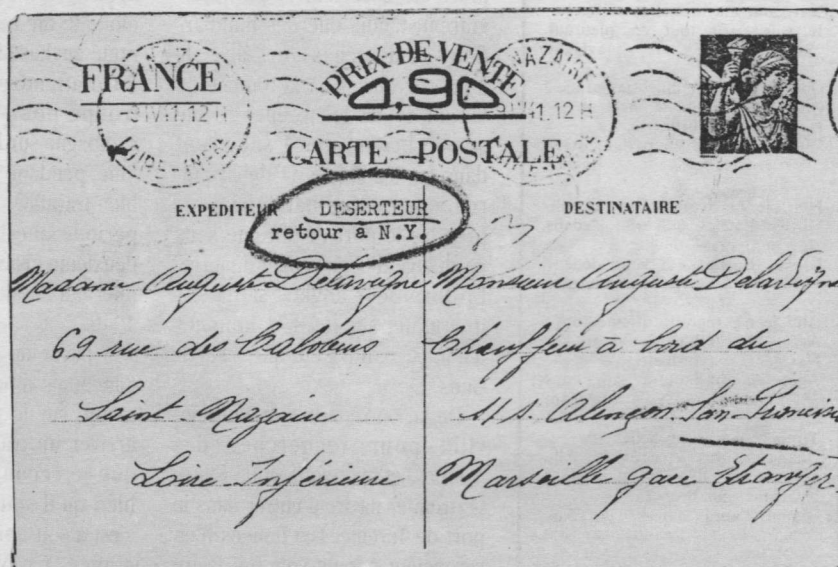 FRANCE
PRIX DE VENTE
0,90
NAZAIRE
12 H
12 H
LOIRE-INF
CARTE POSTALE
EXPEDITEUR
DESERTEUR
retour à N.Y.
DESTINATAIRE
Madame Auguste Delavigne
69 rue des Caloteius
Saint Nazaire
Loire Inferieure
Monsieur Auguste Delavigne
Chauffeur à bord du
S/S. Alençon San-Francisco
Marseille gare Etranger